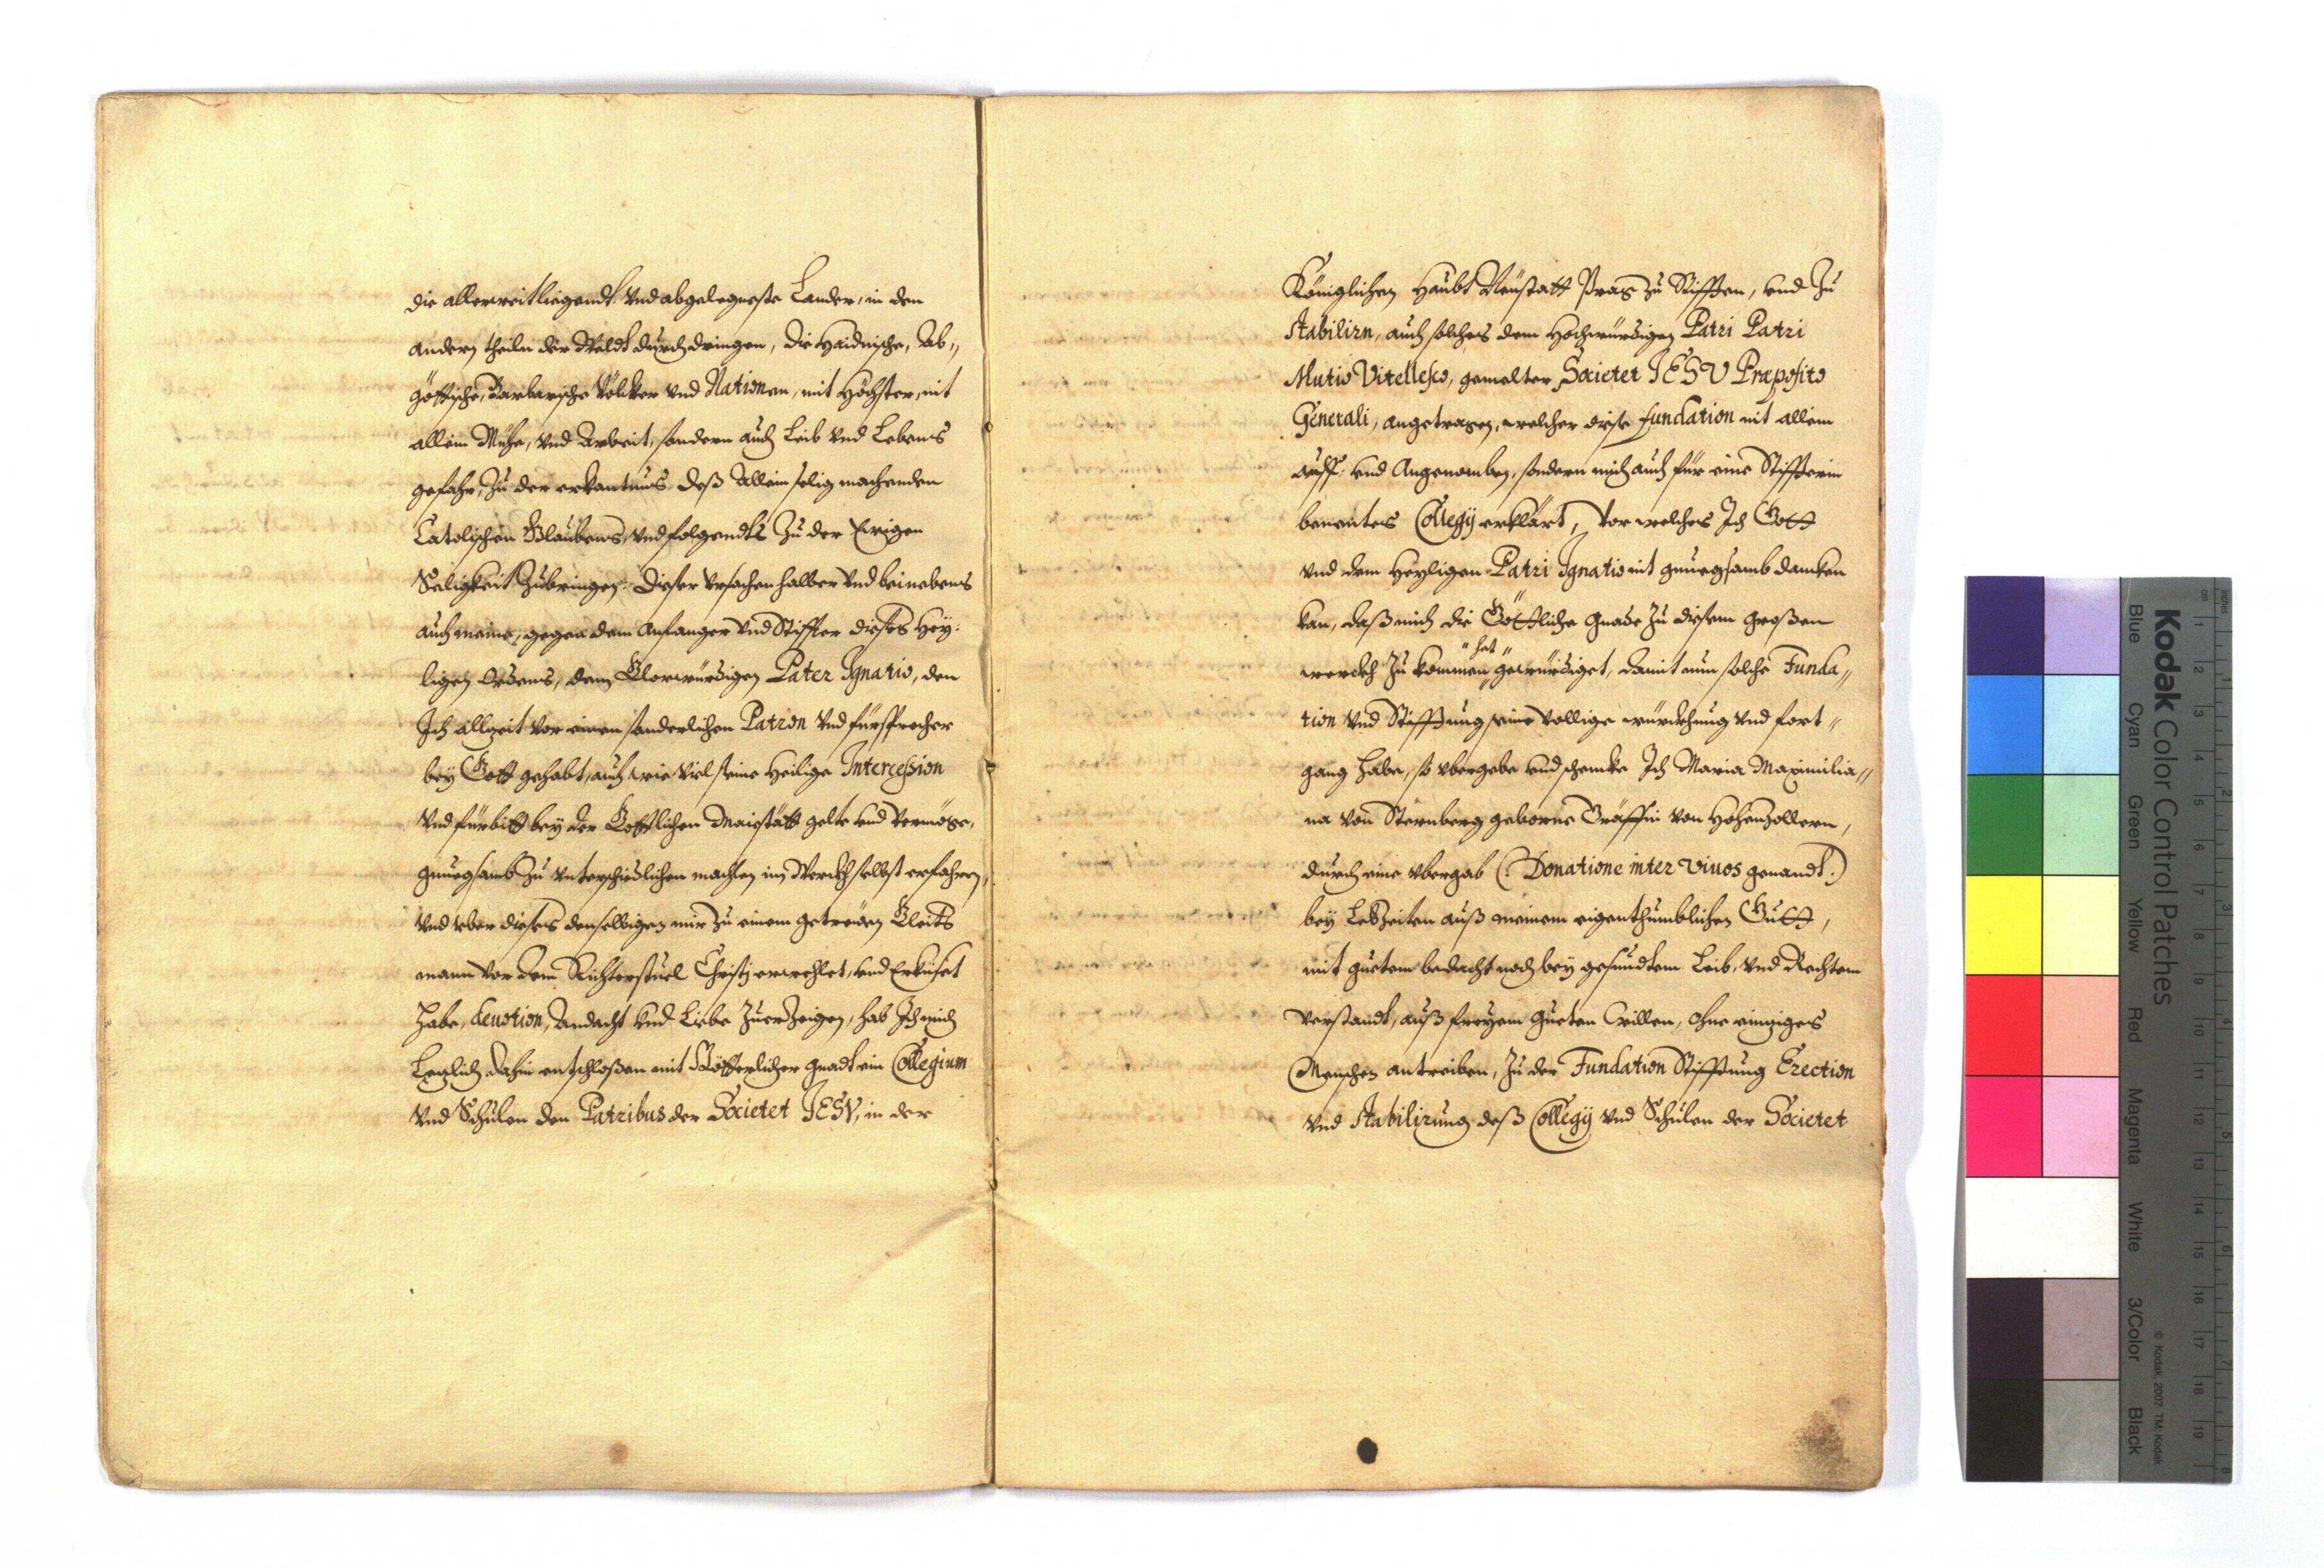 die allerweitliegendt. vnd abgelegneste Lander, in den
andern theiln der Weldt durchdringen, die Haidnische, Ab„
göttische, Barbarische Völcker vnd Nationen, mit Höchster, nit
allein Mühe, vnd Arbeit, sondern auch Leib vnd Lebens
gefahr, Zu der erkantnus deß Allein selig machenden
Catolischen Glaubens, vnd folgendts Zu der Ewigen
Seligkeit Zubringen: Dieser vrsachen halber vnd beinebens
auch meine, gegen dem Anfanger vnd Stiffter dieses Hey:
ligen Ordens, dem Glorwürdigen Pater Ignatio, den
Ich allzeit vor einen sonderlichen Patron vnd fürsprecher
bey Gott gehabt, auch wie viel seine Heilige Intercession
vnd fürbitt bey der Göttlichen Maiestätt gelte vnd vermöge,
gnuegsamb Zu vnterschiedlichen mahlen im Werckh selbst erfahren,
vnd vber dieses denselbigen mir Zu einem getreüen Gleits
mann vor dem Richterstuel Christj erwehlet, vnd Erküset
habe, deuotion, Andacht vnd Liebe Zuerzeigen, hab Ich mich
Lezlich dahin entschloßen mit Göttlicher gnadt ein Collegium
vnd Schulen den Patribus der Societet IESV, in der
Königlichen Haubt Neustatt Prag Zu Stifften, vnd Zu
stabilirn, auch solches dem Hochwürdigen Patri Patri
Mutio Vitellesco, gemelter Societet IESU Præposito
Generali, angetragen, welcher diese fundation nit allein
auff. vnd Angenomben, sondern mich auch für eine Stiffterin
benentes Collegij erklärt, Vor welches Ich Gott
vnd dem Heyligen Patri Ignatio nit gnuegsamb dancken
kan, daß mich die Göttliche gnade Zu diesem großen
„ hat „
werckh Zu kommen gewürdiget, damit nun solche Funda„
tion vnd Stifftung seine völlige würckhung vnd fort„
gang habe, so vbergebe vnd schencke Ich Maria Maximilia„
na von Sternberg geborne Gräffin von Hohenzollern,
durch eine vbergab (: Donatione inter viuos genandt :)
bey Lebzeiten auß meinem eigenthumblichen Gutt,
mit guetem bedacht noch bey gesundtem Leib, vnd Rechtem
Verstandt, auß freyem Gueten Willen, ohne einziges
Menschen antreiben, Zu der Fundation Stifftung Erection
vnd Stabilirung deß Collegij vnd Schulen der Societet
Kodak Color Control Patches
Blue Cyan Green Yellow Red Magenta White 3/Color Black
© Kodak, 2007. TM: Kodak